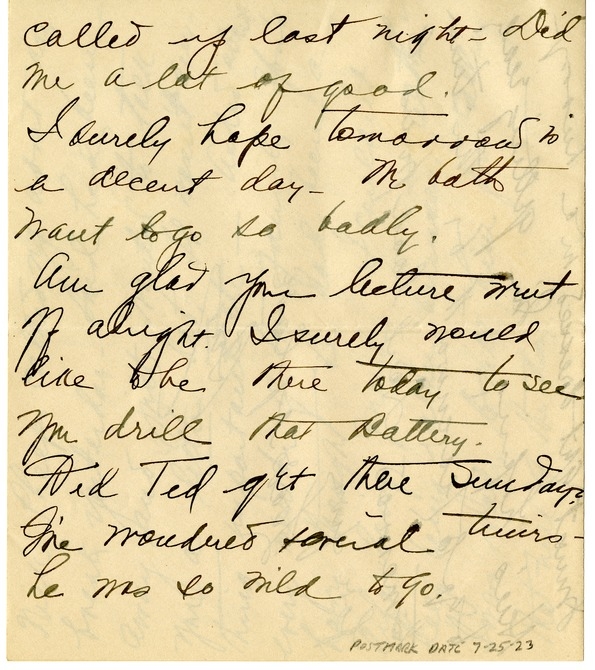 called up last night - Did
me a lot of good.
I surely hope tomorrow is
a decent day - We both
want to go so badly.
Am glad your lecture went
off alright. I surely would
like to be there today to see
you drill that Battery.
Did Ted get there Sunday?
I've wondered several times -
he was so wild to go.
POSTMARK DATE 7-25-23